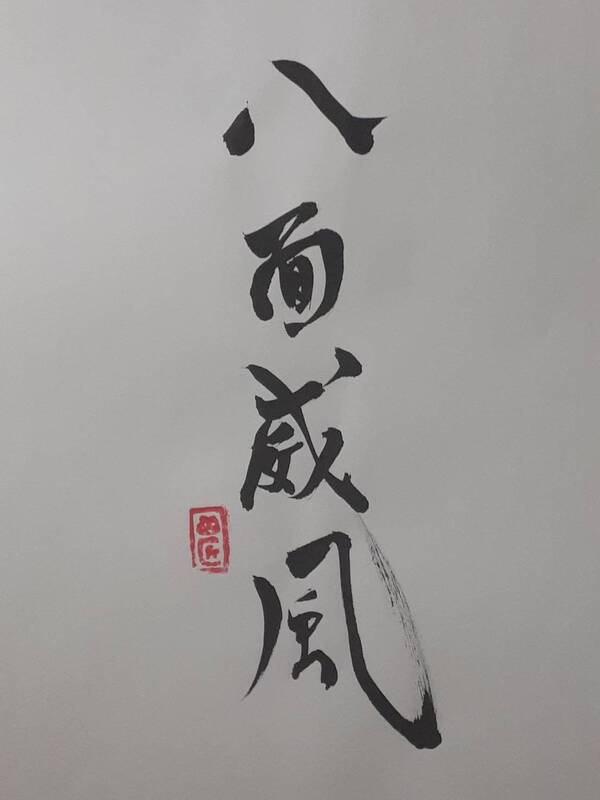 八面威風